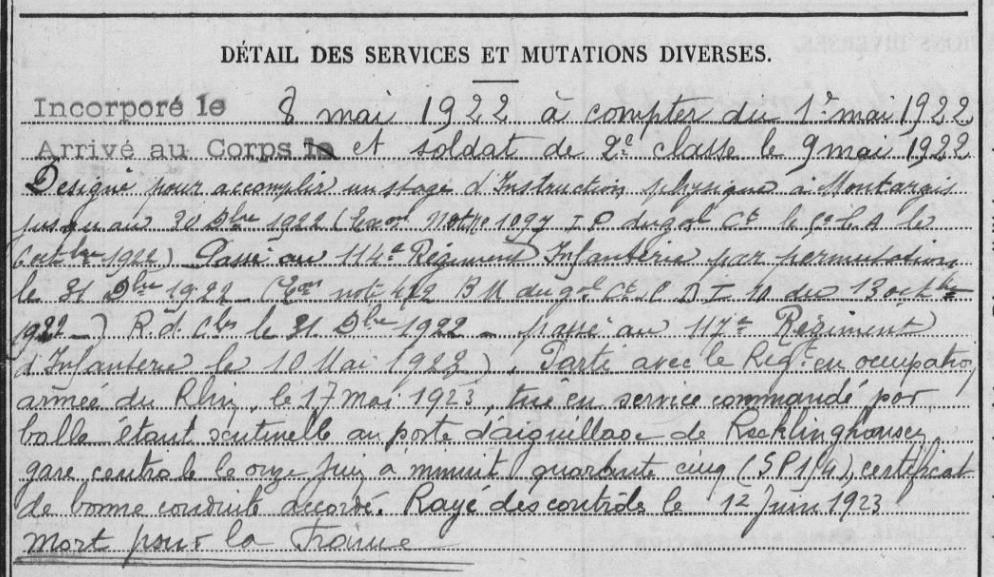 DÉTAIL DES SERVICES ET MUTATIONS DIVERSES.
Incorporé le 8 mai 1922 à compter du 1er mai 1922
Arrivé au Corps le et soldat de 2e classe le 9 mai 1922
Designé pour accomplir un stage d'Instruction physique à Montargis
jusqu'au 30 Dbre 1922 (Exon Note no 1097 I P du gal Ct le C.A le
1922) Passé au 114e Régiment Infanterie par permutation
le 31 Dbre 1922 (Exon note 442 B M du gal Ct D I du 13
1922 -) R. d. Cles le 31 Dbre 1922 - passé au 117e Régiment
d'Infanterie le 10 Mai 1923). Parti avec le Regt en ocupation
armée du Rhin, le 17 Mai 1923, tué en service commandé par
balle étant sentinelle au poste d'aiguillage de Recklinghousen
gare centrale le onze Juin à minuit quarante cinq (SP 114), certificat
de bonne conduite accordé. Rayé des contrôles le 12 Juin 1923
Mort pour la France